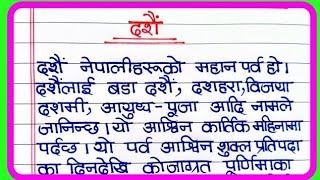 दशैं
दशैं नेपालीहरूको महान पर्व हो।
दशैंलाई बडा दशैं, दशहरा, विजया
दशमी, आयुध्य-पूजा आदि नामले
जानिन्छ। यो आश्विन कार्तिक महिनामा
पर्दछ। यो पर्व आश्विन शुक्ल प्रतिपदा
का दिनदेखि कोजाग्रत पूर्णिमाका